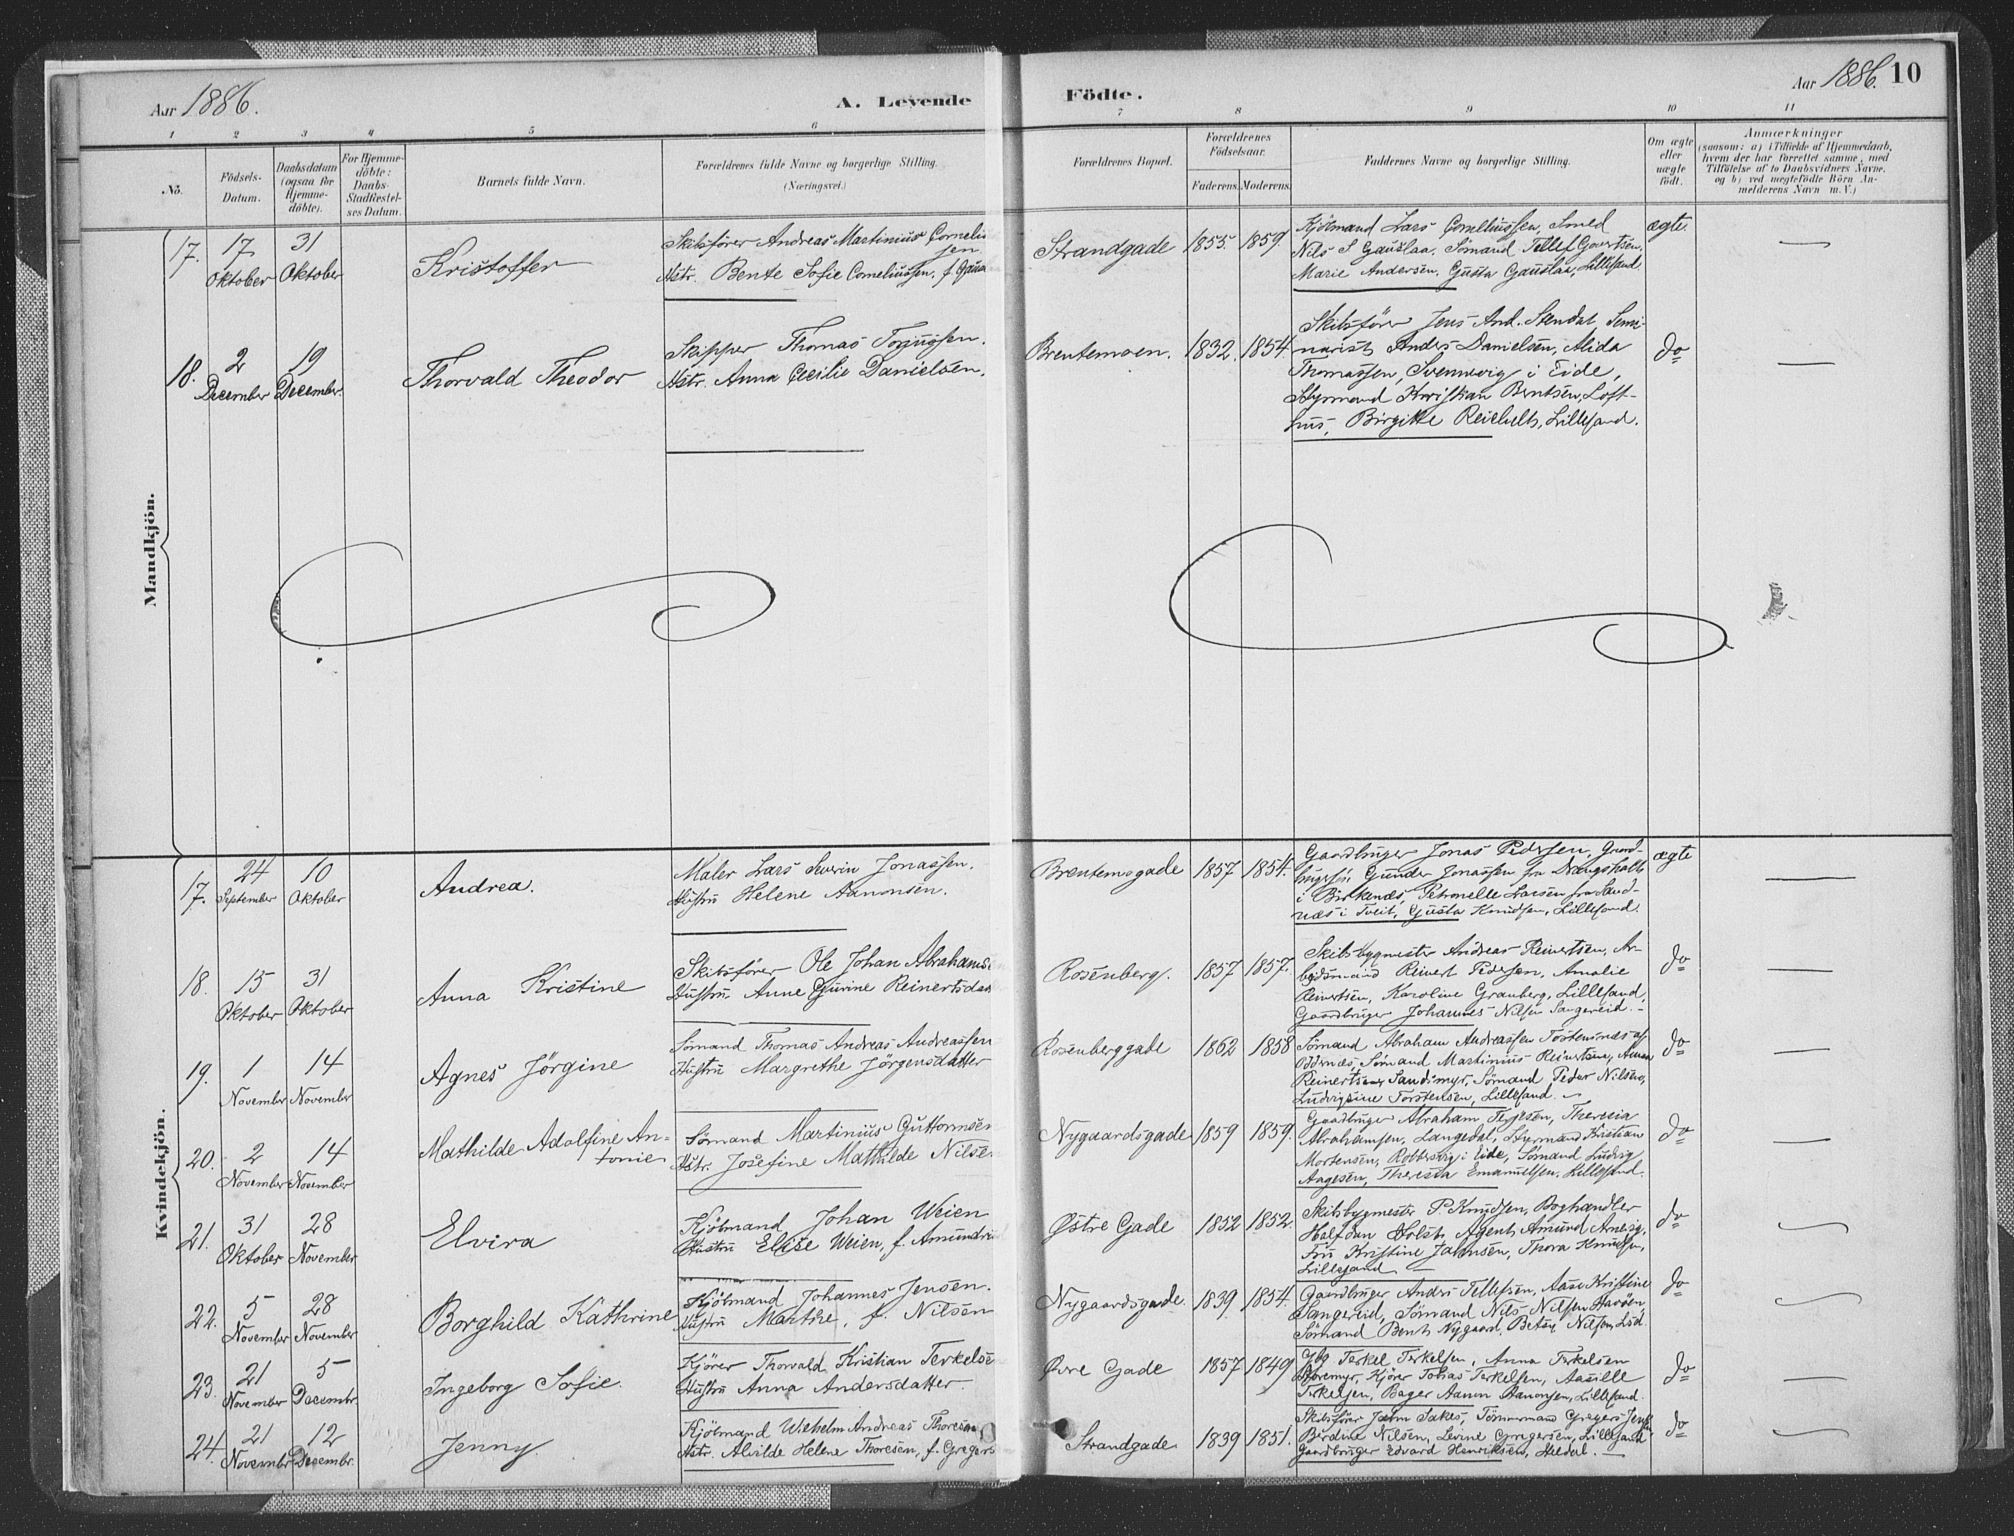 Aar 1886.
A. Levende
Födte.
Aar 1886. 10
1 2 3 4 5 6 7 8 9 10 11
No.
Födsels-
Datum.
Daabsdatum
(ogsaa for
Hjemme-
döbte).
For Hjemme-
döbte:
Daabs-
Stadfæstel-
ses Datum.
Barnets fulde Navn.
Forældrenes fulde Navne og borgerlige Stilling.
(Næringsvei.)
Forældrenes Bopæl.
Forældrenes
Födselsaar.
Faderens. Moderens.
Faddernes Navne og borgerlige Stilling.
Om ægte
eller
uægte
födt.
Anmærkninger
(saasom: a) i Tilfælde af Hjemmedaab,
hvem der har forrettet samme, med
Tilföielse af to Daabsvidners Navne.
og b) ved uægtefödte Börn An-
melderens Navn m. V.)
Mandkjön.
17. 17 Oktober 31 Oktober Kristoffer
Skibsfører Andreas Martinius Cornelius
sen
Hstr. Bente Sofie Corneliussen, f. Gaus
Strandgade 1855. 1859.
Kjøbmand Lars Corneliussen, Smed
Nils S Gauslaa, Sömand Tellef Govertsen,
Marie Andersen, Gusta Gauslaa, Lillesand
ægte.
18. 2 December 19 December. Thorvald Theodor
Skipper Thomas Torjussen.
Hstr. Anna Cecilie Danielsen.
Brentemoen. 1832. 1854
Skibsfører Jens And. Stendal, Semi-
narist Anders Danielsen, Alida
Thomassen, Svennevig i Eide,
Styrmand Kristian Berntsen, Loft-
hus, Birgitte Reichelt, Lillesand.
do
Kvindekjön.
17. 24 September 10 Oktober Andrea.
Maler Lars Severin Jonassen.
Hustru Helene Aanonsen.
Brentemogade 1857 1854.
Gaardbruger Jonas Pedersen, Gaard-
brugersön Gunder Jonassen fra
i Birkenes, Petronelle Larsen fra Sand-
næs i Tveit, Gusta Knudsen, Lillesand.
ægte
18. 15 Oktober 31 Oktober Anna Kristine
Skibsfører Ole Johan Abrahamsen
Hustru Anne Gurine Reinertsdat
Rosenberg. 1857 1857.
Skibsbygmester Andreas Reinertsen, Ar-
beidsmand Reinert Pedersen, Amalie
Reinertsen, Karoline Granberg, Lillesand,
Gaardbruger Johannes Nilsen Sangereid.
do
19. 1 November 14 November Agnes Jörgine
Sömand Thomas Andreas Andreassen
Hustru Margrethe Jörgensdatter
Rosenberggade 1862 1858
Sömand Abraham Andreassen
Sömand Martinius Reinertsen,
Reinertsen, Sandsmyr, Sömand Peder Nilsen,
Torstensen, Lillesand.
do
20. 2 November 14 November Mathilde Adolfine An-
tonie
Sömand Martinius Guttormsen
Hstr. Josefine Mathilde Nilsen
Nygaardsgade 1859 1859.
Gaardbruger Abraham Theresia
Abrahamsen, Langedal, Styrmand Kristian
Mortensen, i Eide, Sömand Ludvig
Aagesen, Theresia Emanuelsen, Lillesand.
do
21. 31 Oktober 28 November Elvira
Kjöbmand Johan Weien
Hustru Elise Weien, f. Amundsen
Østre Gade 1852 1852.
Skibsbygmester P Knudsen, Boghandler
Halfdan Holst, Agent Amund
Fru Kristine Thora Knudsen,
Lillesand
do
22. 5 November 28 November Borghild Kathrine
Kjöbmand Johannes Jensen.
Hustru Marthe, f. Nilsen
Nygaardsgade 1839. 1854.
Gaardbruger Anders Tellefsen, Aase Kristine
Sangereid, Sömand Nils Nilsen
Sömand Bent Nygaard, Betsy Nilsen,
do
23. 21 November 5 Decembr. Ingeborg Sofie.
Kjörer Thorvald Kristian Terkelsen
Hustru Anna Andersdatter.
Øvre Gade 1857 1849
Gbr Terkel Terkelsen, Anna Terkelsen
Kjörer Tobias Terkelsen,
Terkelsen, Bager Aanon Aanonsen, Lillesand.
do
24. 21 November 12 Decembr. Jenny.
Kjöbmand Wilhelm Andreas Thoresen
Hstr. Alvilde Helene Thoresen, f. Gregers
Strandgade 1839 1851.
Skibsfører Tömmermand Gregers
Nilsen, Levine Gregersen, Lillesand
Gaardbruger Edvard Henriksen, Heldal.
do